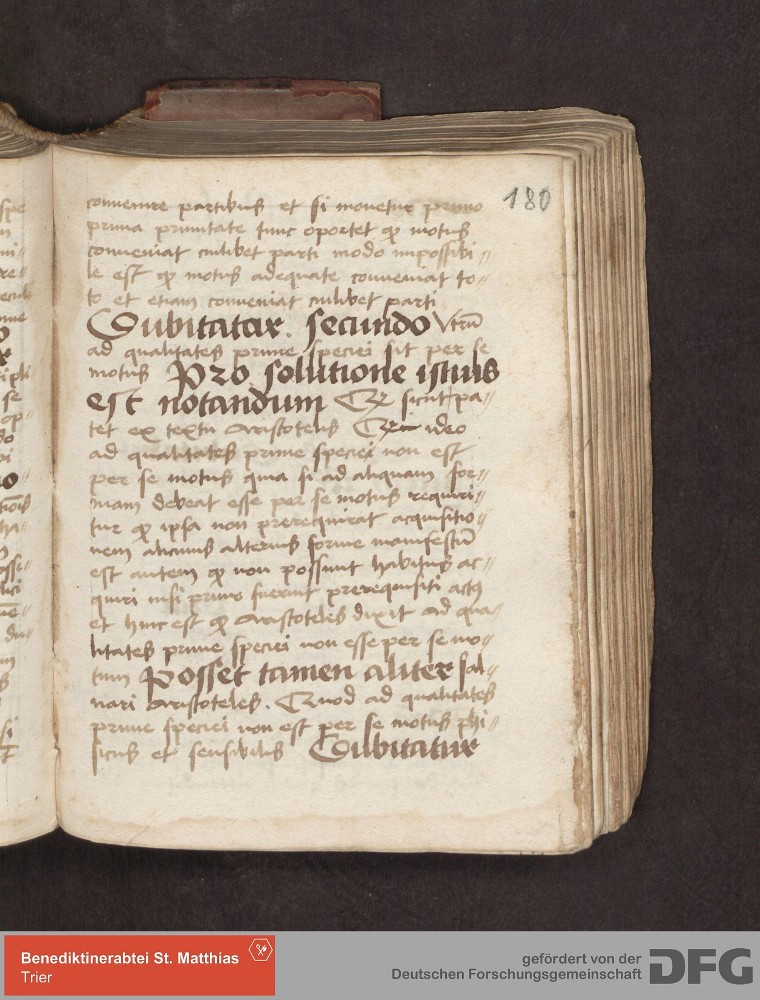 180
conuenire partibus et si mouetur primo
prima primitate tunc oportet qꝫ motus
conueniat cuilibet parti modo impossibi〃
le est qꝫ motus adequate conueniat to〃
to et etiam conueniat cuilibet parti
Dubitatur. secundo vtrū
ad qualitates prime speciei sit per se
motus Pro solutione istius
est notandum sicut pa〃
tet ex textu Aristotelis ideo
ad qualitates prime speciei non est
per se motus quia si ad aliquam for〃
mam debeat esse per se motus requiri〃
tur qꝫ ipsa non prerequirat acquisitio〃
nem alicuius alterius forme manifestū
est autem qꝫ non possunt habitus ac〃
quiri nisi primo fuerint prerequisiti actꝯ
et hinc est qꝫ Aristoteles dixit ad qua〃
litates prime speciei non esse per se mo〃
tum Posset tamen aliter sal〃
uari Aristoteles. Quod ad qualitates
prime speciei non est per se motus phi〃
sicus et sensibilis Dubitatur
Benediktinerabtei St. Matthias
Trier
gefördert von der
Deutschen Forschungsgemeinschaft
DFG